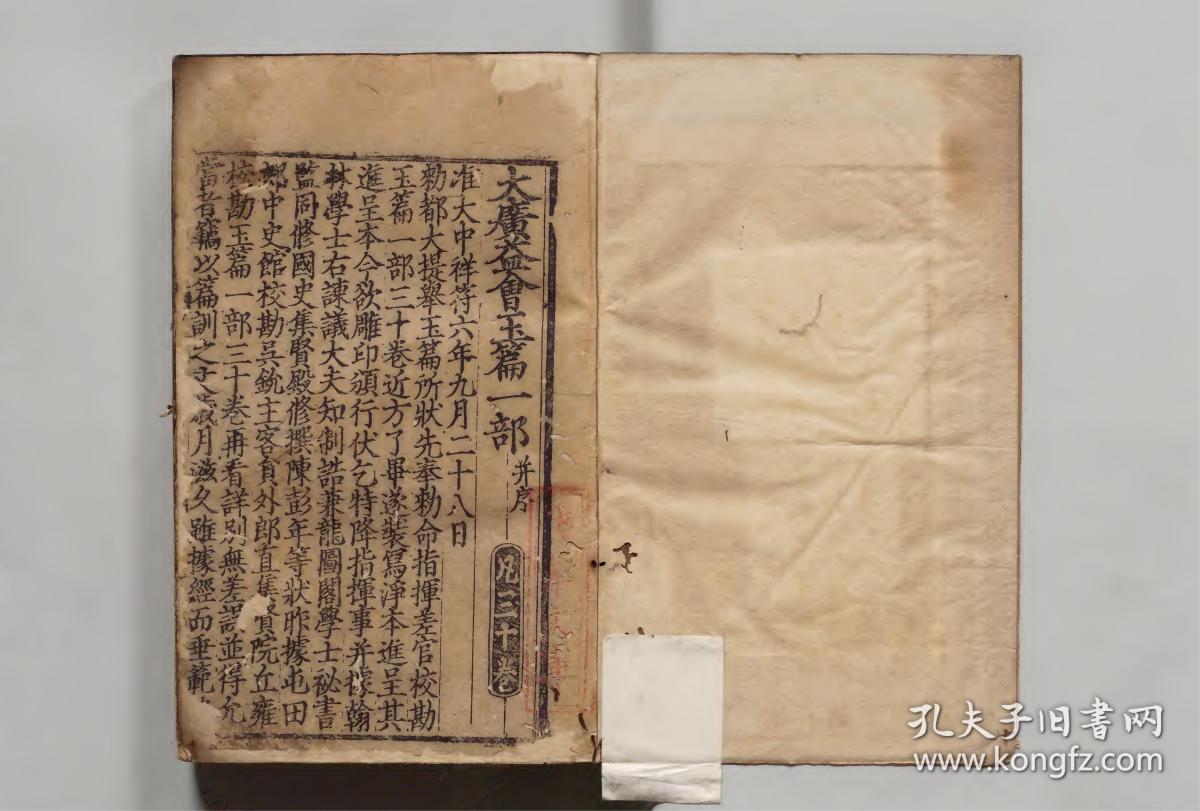 大廣益會玉篇一部 并序
凡三十卷
准大中祥符六年九月二十八日
勅都大提舉玉篇所狀先奉勅命指揮差官校勘
玉篇一部三十卷近方了畢遂裝寫淨本進呈其
進呈本今欲雕印頒行伏乞特降指揮事并據翰
林學士右諫議大夫知制誥兼龍圖閣學士祕書
監同修國史集賢殿修撰陳彭年等狀昨據屯田
郎中史館校勘吳銳主客員外郎直集賢院丘雍
校勘玉篇一部三十卷再看詳別無差誤並得允
當者竊以篇訓之文歲月滋久雖據經而垂範
孔夫子旧书网
www.kongfz.com